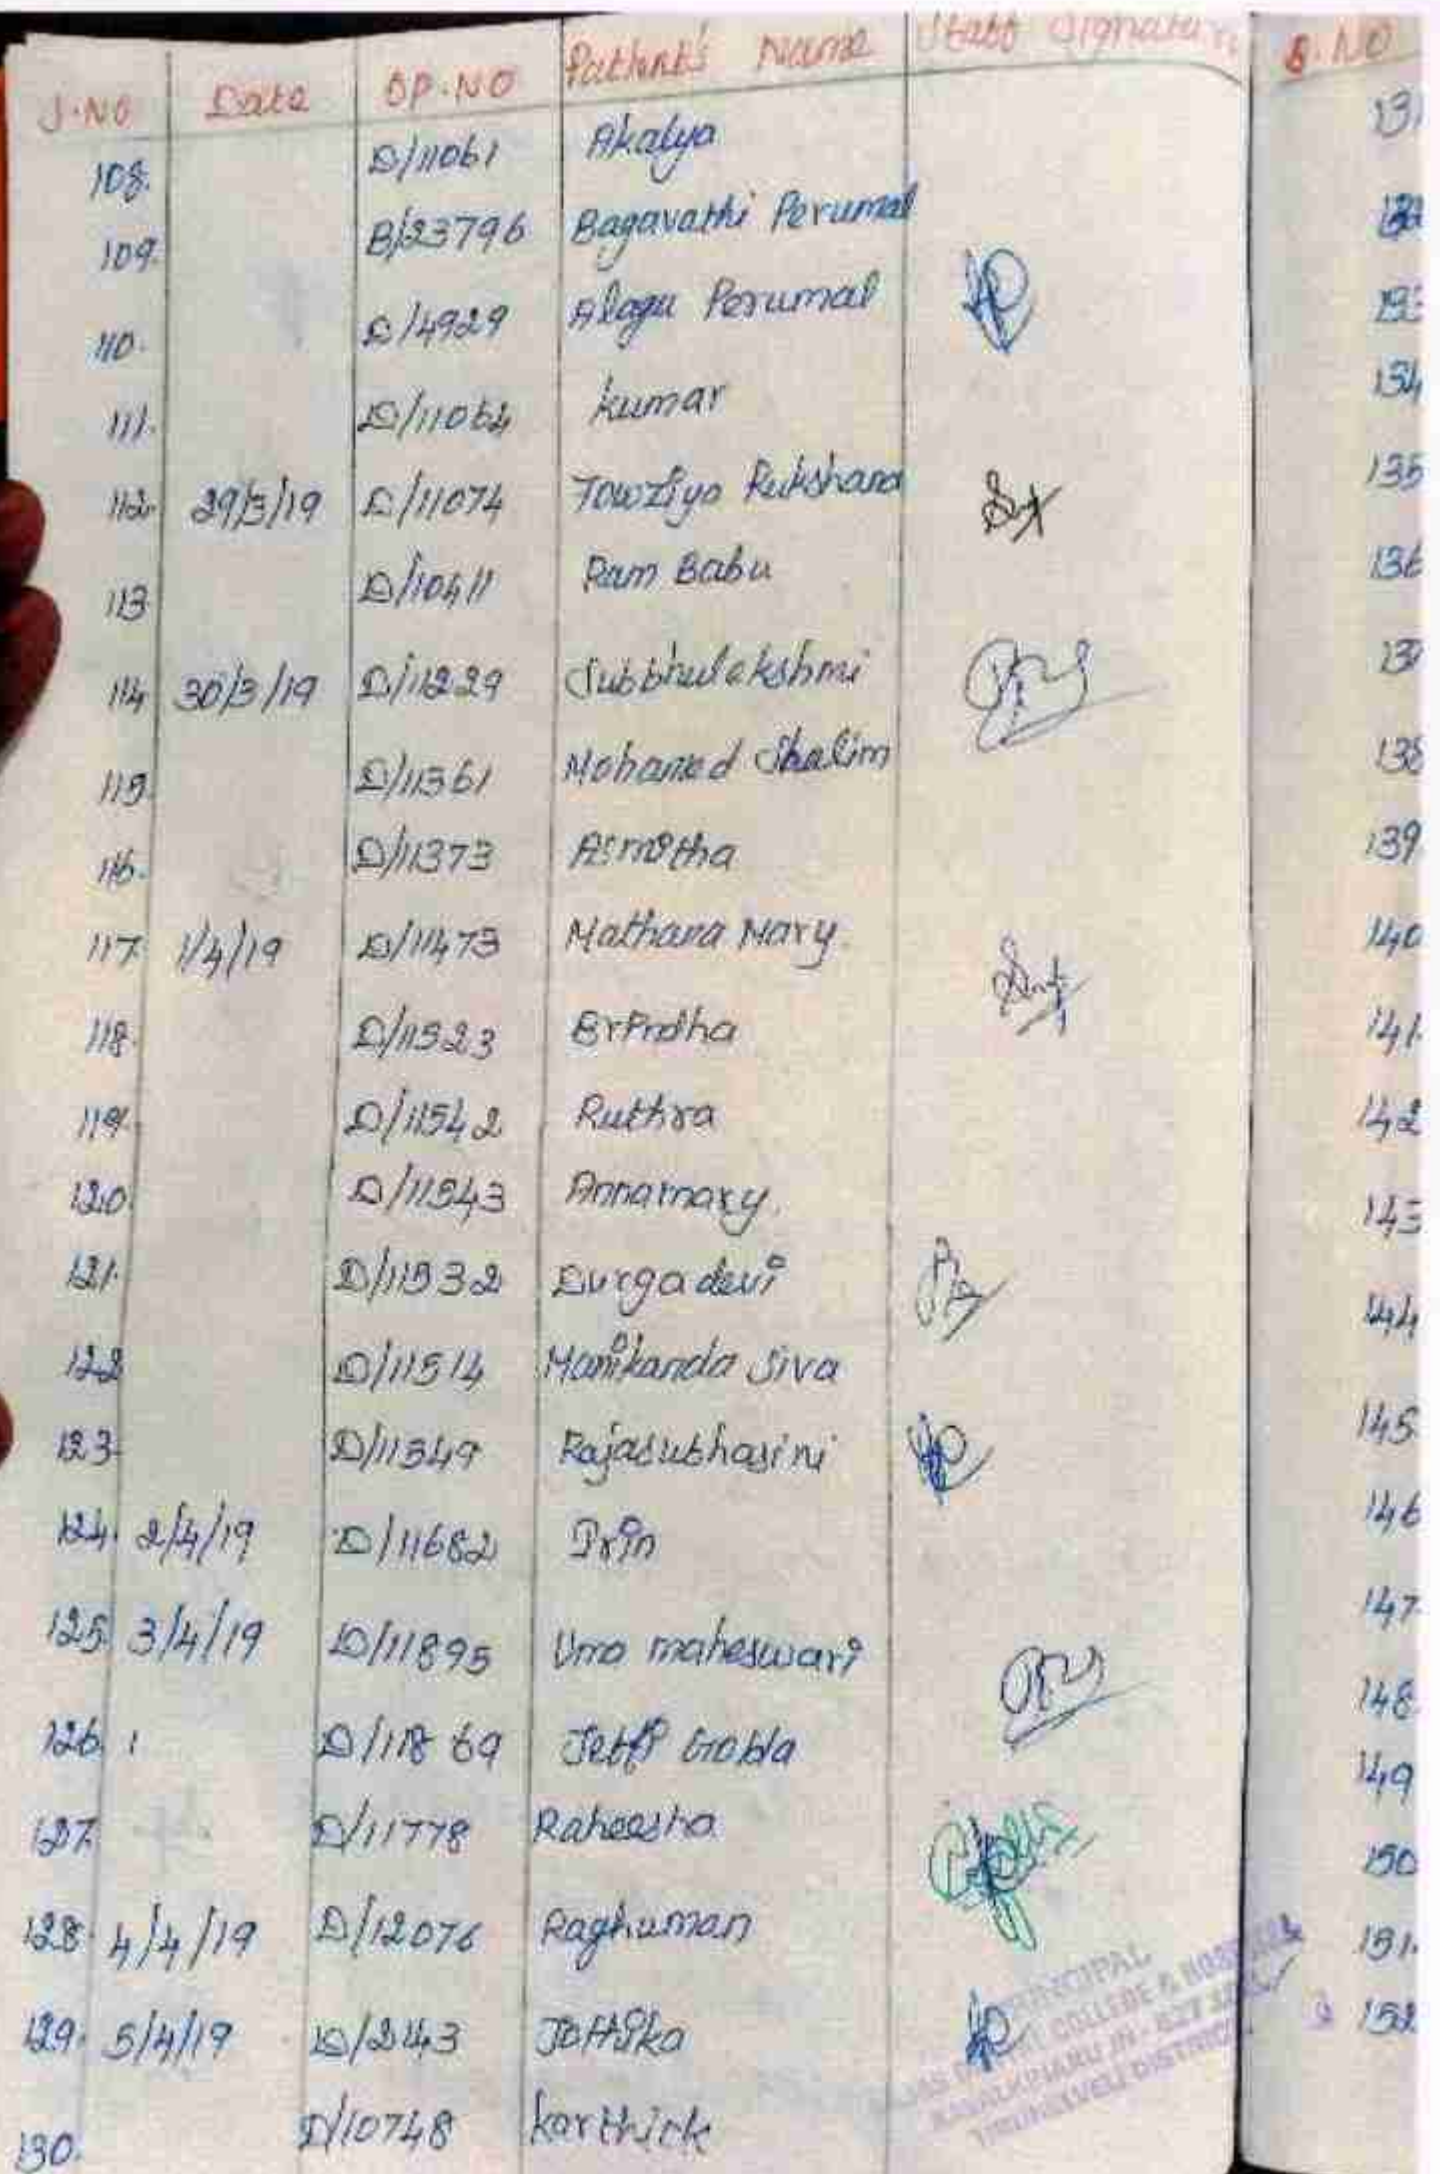 S.NO Date OP.NO Patient's Name Staff Signature
108. D/11061 Akalya
109. B/23796 Bagavathi Perumal
110. D/4929 Alagu Perumal
111. D/11064 kumar
112. 29/3/19 D/11074 Towziya Rukshana
113. D/10411 Ram Babu
114 30/3/19 D/11229 Subbhulakshmi
115. D/11361 Mohamed Shalim
116. D/11373 Asmitha
117. 1/4/19 D/11473 Mathana Mary.
118. D/11523
119. D/11542 Ruthra
120. D/11543 Annamary.
121. D/11532 Durga devi
122 D/11514 Manikanda Siva
123. D/11549 Rajasubhasini
124. 2/4/19 D/11682 Prin
125. 3/4/19 D/11895 Uma maheswari
126. D/11869
127. D/11778 Raheesha
128. 4/4/19 D/12076 Raghuman
129. 5/4/19 D/2143 Jothika
130. D/10748 karthick
PRINCIPAL
COLLEGE &
TIRUNELVELI DISTRICT
S.NO
131
132
133
134
135
136
137
138
139
140
141.
142
143
144
145
146
147
148
149
150
151.
152